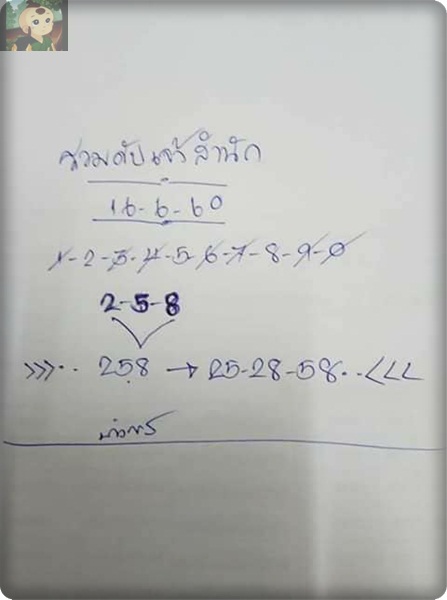 รวมดับเจ้าสำนัก
16-6-60
1-2-3-4-5-6-7-8-9-0
2-5-8
>>>.. 258 → 25-28-58.. <<<